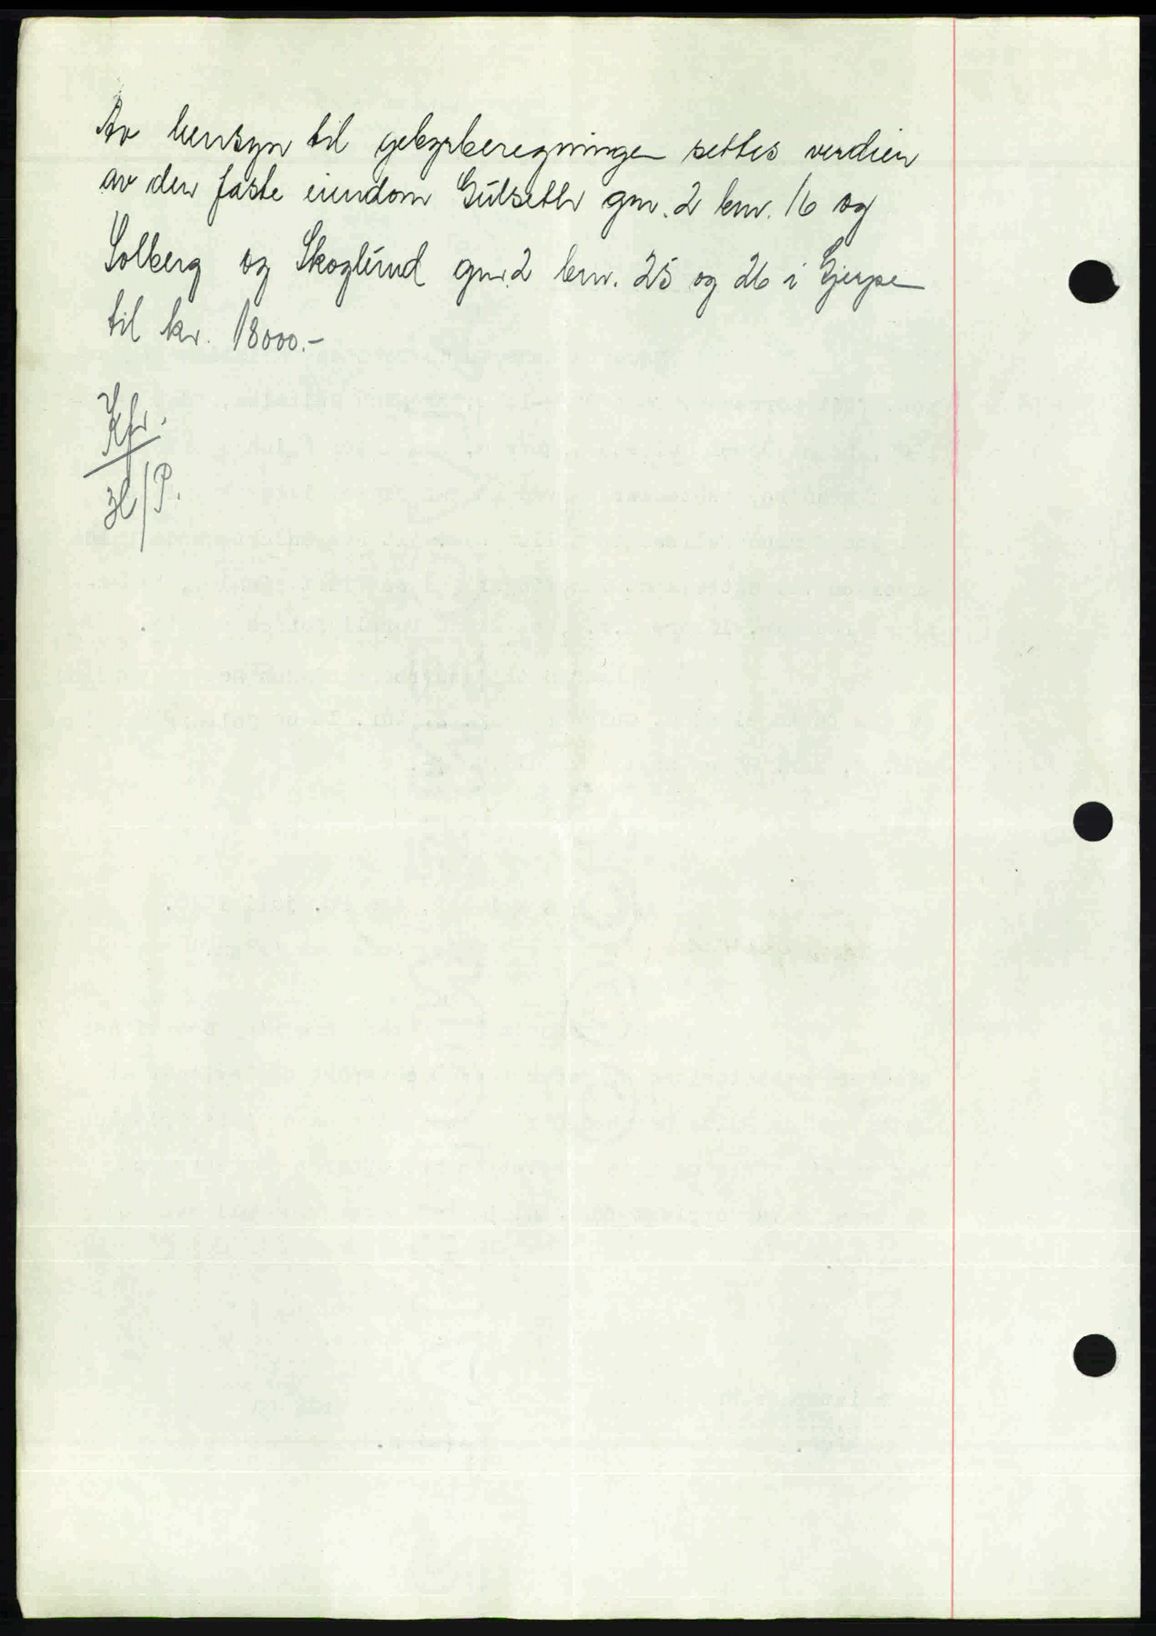 Av hensyn til gebyrberegningen settes verdien
av den faste eiendom Gulseth gnr. 2 bnr. 16 og
Solberg og Skoglund gnr. 2 bnr. 25 og 26 i Gjerpe
til kr. 18000.-
Kfr.
/P.